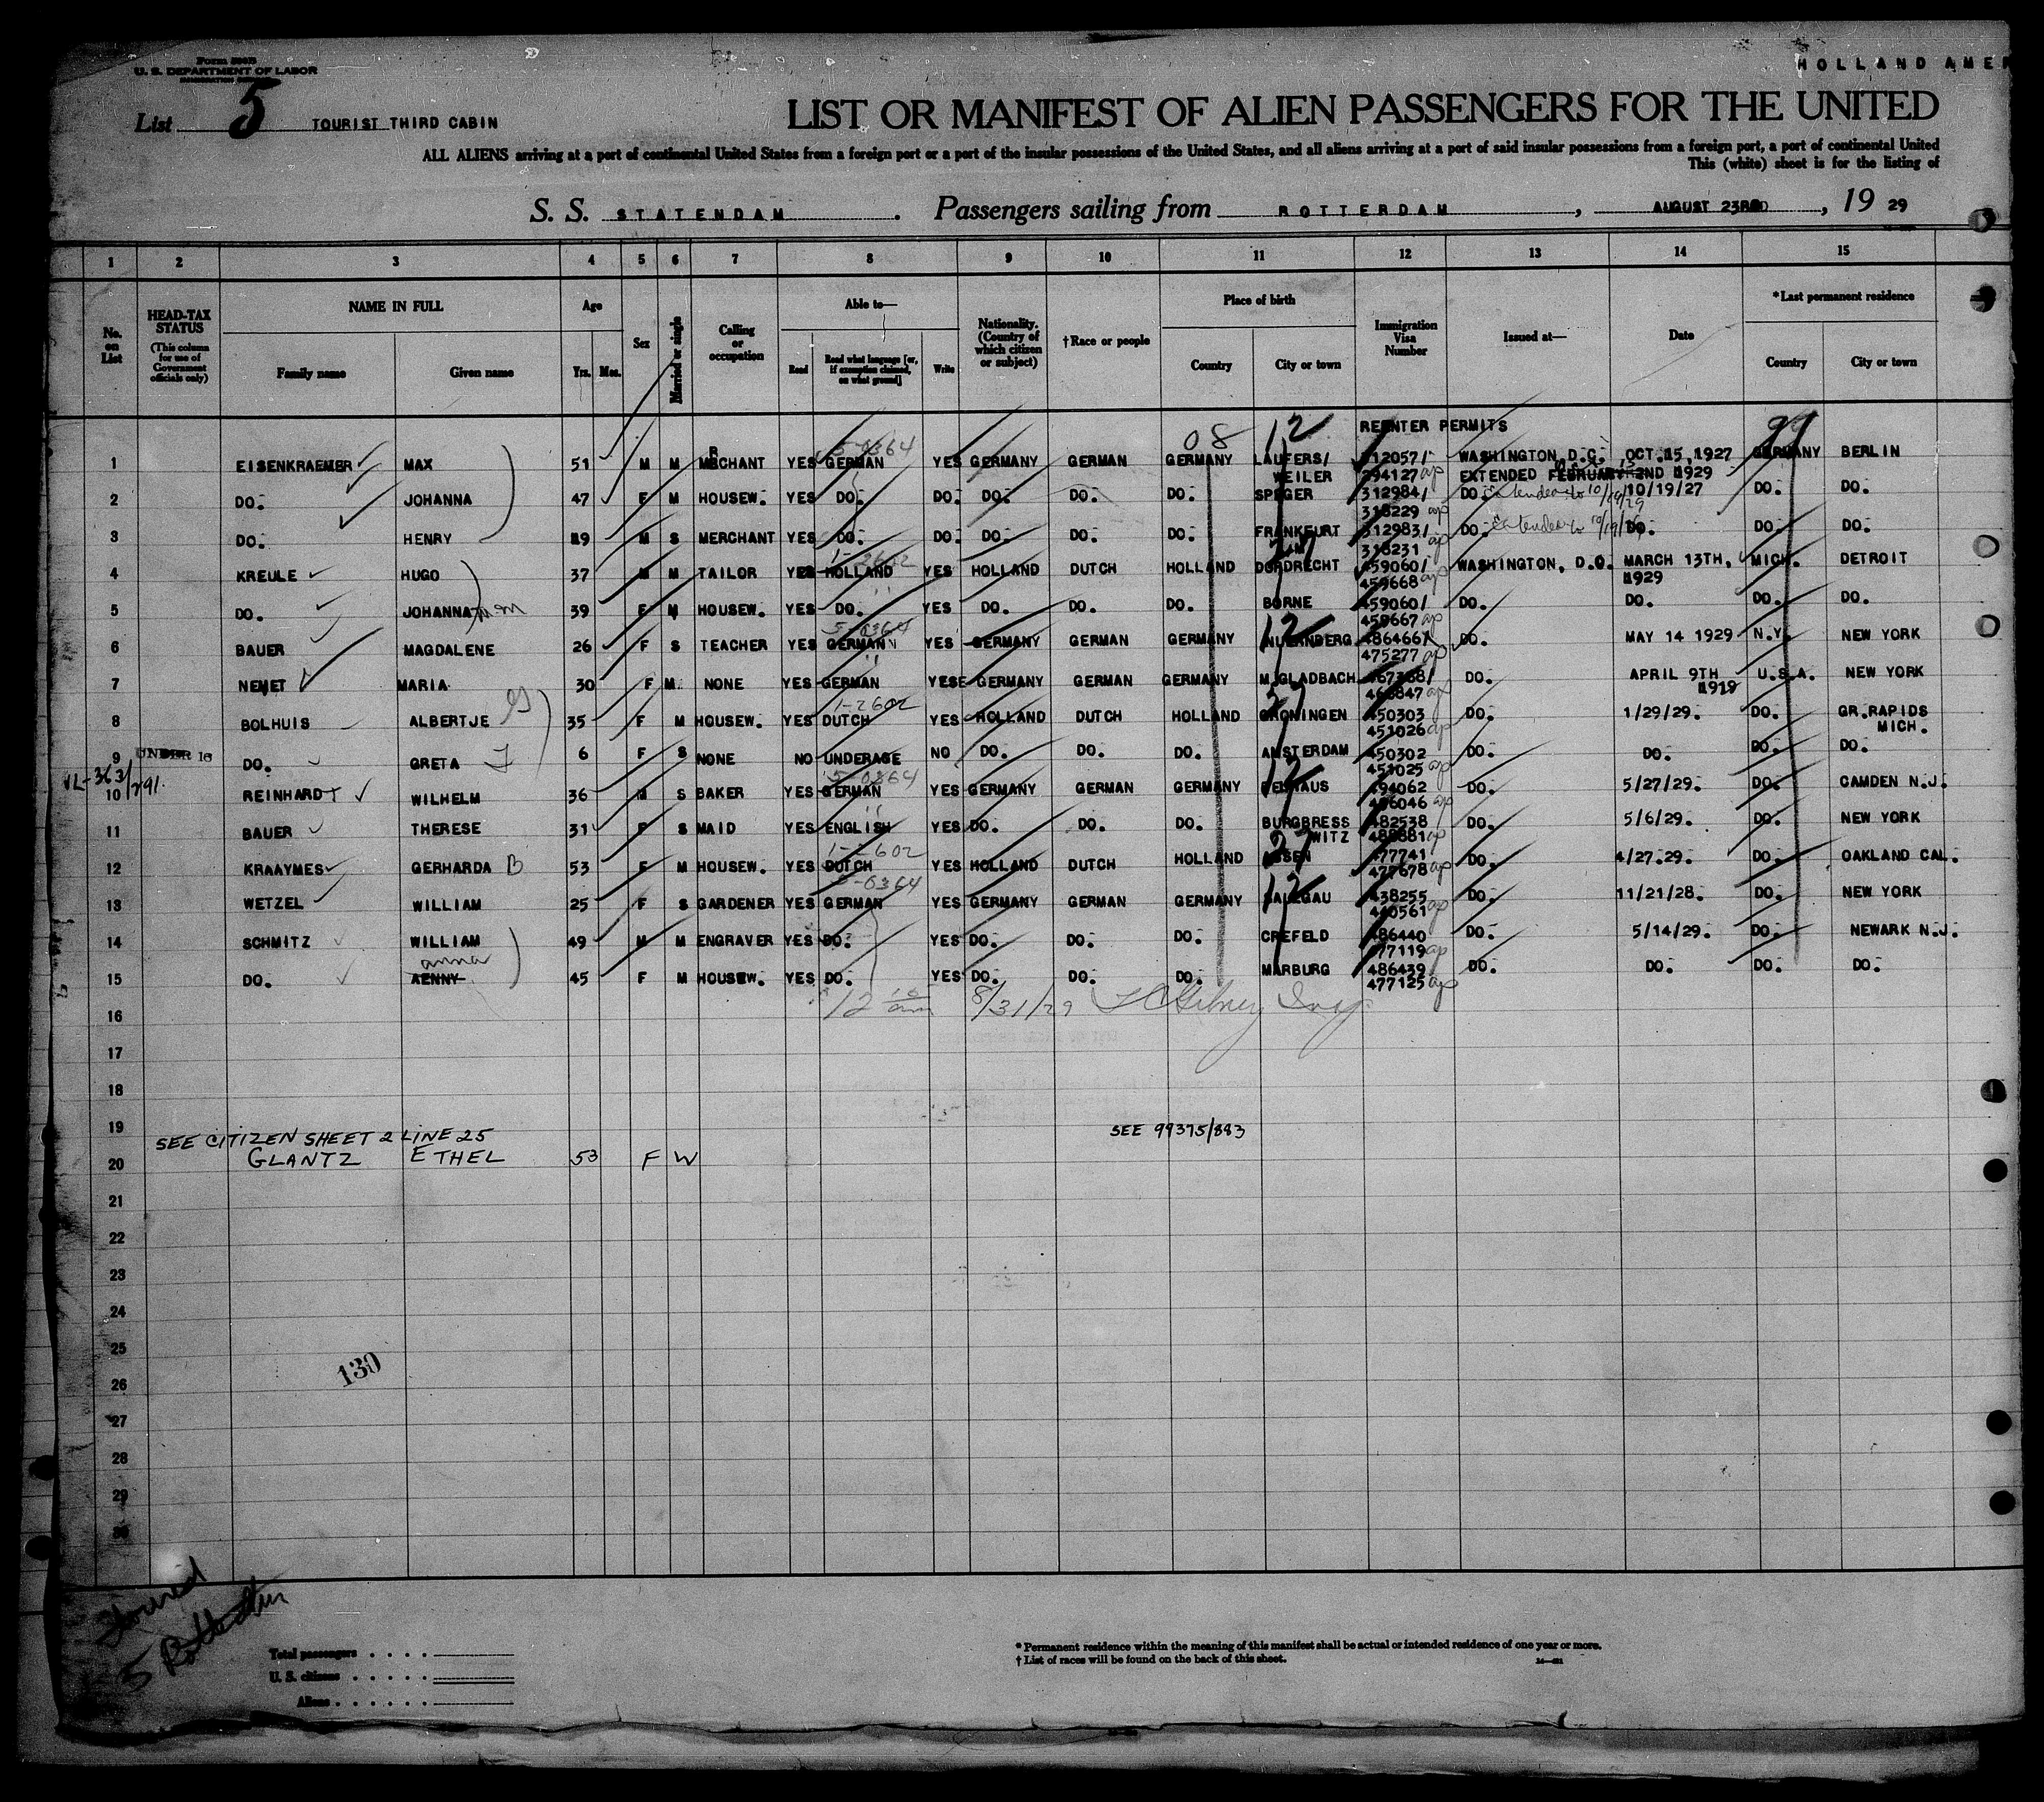 Form 500B
U. S. DEPARTMENT OF LABOR
HOLLAND AMER
List 5 TOURIST THIRD CABIN
LIST OR MANIFEST OF ALIEN PASSENGERS FOR THE UNITED
ALL ALIENS arriving at a port of continental United States from a foreign port or a port of the insular possessions of the United States, and all aliens arriving at a port of said insular possessions from a foreign port, a port of continental United
This (white) sheet is for the listing of
S. S. STATENDAM. Passengers sailing from ROTTERDAM, AUGUST 23RD, 19 29
1 2 3 4 5 6 7 8 9 10 11 12 13 14 15
No. on List
HEAD-TAX STATUS (This column for use of Government officials only)
NAME IN FULL Family name Given name
Age Yrs. Mos.
Sex
Married or single
Calling or occupation
Able to— Read Read what language [or, if exemption claimed, on what ground] Write
Nationality. (Country of which citizen or subject)
†Race or people
Place of birth Country City or town
Immigration Visa Number
Issued at—
Date
*Last permanent residence Country City or town
08 12 REENTER PERMITS 99
5-0364
1 EISENKRAEMER MAX 51 M M MERCHANT YES GERMAN YES GERMANY GERMAN GERMANY LAUFERS/ 312057/ WASHINGTON D.C. OCT.15,1927 GERMANY BERLIN
WEILER 294127 EXTENDED FEBRUARY 2ND 1929
2 DO. JOHANNA 47 F M HOUSEW. YES DO. DO. DO. DO. DO. SPEGER 312984/ DO. extended to 10/19/29 10/19/27 DO. DO.
318229
3 DO. HENRY 19 M S MERCHANT YES DO. DO. DO. DO. DO. FRANKFURT 312983/ DO. extended to 10/19/29 DO. DO. DO.
1-2602 318231
4 KREULE HUGO 37 M M TAILOR YES HOLLAND YES HOLLAND DUTCH HOLLAND DORDRECHT 459060/ WASHINGTON, D.C. MARCH 13TH, MICH. DETROIT
459668 1929
5 DO. JOHANNA M 39 F M HOUSEW. YES DO. YES DO. DO. DO. BORNE 459060/ DO. DO. DO. DO.
5-0364 12 459667
6 BAUER MAGDALENE 26 F S TEACHER YES GERMAN YES GERMANY GERMAN GERMANY NUERNBERG 486466/ DO. MAY 14 1929 N.Y. NEW YORK
475277
7 NEMET MARIA 30 F M. NONE YES GERMAN YES GERMANY GERMAN GERMANY M.GLADBACH 467368/ DO. APRIL 9TH U.S.A. NEW YORK
1-2602 27 468847 1919
8 BOLHUIS ALBERTJE G 35 F M HOUSEW. YES DUTCH YES HOLLAND DUTCH HOLLAND GRONINGEN 450303 DO. 1/29/29. DO. GR.RAPIDS
451026 MICH.
9 UNDER 16 DO. GRETA 6 F S NONE NO UNDERAGE NO DO. DO. DO. AMSTERDAM 450302 DO. DO. DO. DO.
5-0364 12 451025
10 REINHARDT WILHELM 36 M S BAKER YES GERMAN YES GERMANY GERMAN GERMANY 494062 DO. 5/27/29. DO. CAMDEN N.J.
496046
11 BAUER THERESE 31 F S MAID YES ENGLISH YES DO. DO. DO. BURGBRESS 482538 DO. 5/6/29. DO. NEW YORK
1-2602 WITZ 488881
12 KRAAYMES GERHARDA B 53 F M HOUSEW. YES DUTCH YES HOLLAND DUTCH HOLLAND ASSEN 477741 DO. 4/27.29. DO. OAKLAND CAL.
5-0364 477678
13 WETZEL WILLIAM 25 F S GARDENER YES GERMAN YES GERMANY GERMAN GERMANY SAULGAU 438255 DO. 11/21/28. DO. NEW YORK
440561
14 SCHMITZ WILLIAM 49 M M ENGRAVER YES DO. YES DO. DO. DO. CREFELD 486440 DO. 5/14/29. DO. NEWARK N.J.
anna 477119
15 DO. AENNY 45 F M HOUSEW. YES DO. YES DO. DO. DO. MARBURG 486439 DO. DO. DO. DO.
477125
16 12 8/31/29 Insp.
17
18
19 SEE CITIZEN SHEET 2 LINE 25 SEE 99375/883
20 GLANTZ ETHEL 53 F W
21
22
23
24
25
26
130
27
28
29
30
5 Rotterdam
Total passengers
U. S. citizens
Aliens
* Permanent residence within the meaning of this manifest shall be actual or intended residence of one year or more.
† List of races will be found on the back of this sheet.